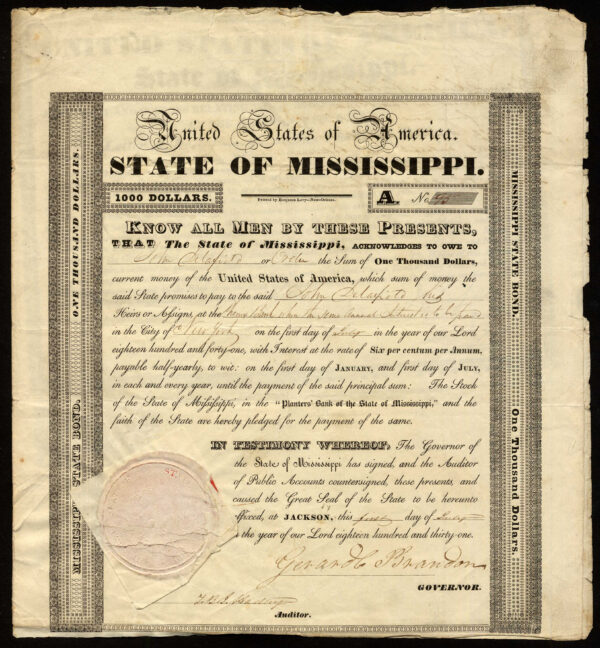 United States of America.
STATE OF MISSISSIPPI.
1000 DOLLARS.
Printed by Benjamin Levy—New-Orleans.
A. No.
KNOW ALL MEN BY THESE PRESENTS,
THAT The State of Mississippi, ACKNOWLEDGES TO OWE TO
John Delafield or Order the Sum of One Thousand Dollars,
current money of the United States of America, which sum of money the
said State promises to pay to the said John Delafield his
Heirs or Assigns, at the where the Semi Annual Interest is to be paid
in the City of New York on the first day of July in the year of our Lord
eighteen hundred and forty-one, with Interest at the rate of Six per centum per Annum,
payable half-yearly, to wit: on the first day of JANUARY, and first day of JULY,
in each and every year, until the payment of the said principal sum: The Stock
of the State of Mississippi, in the "Planters' Bank of the State of Mississippi," and the
faith of the State are hereby pledged for the payment of the same.
IN TESTIMONY WHEREOF, The Governor of
the State of Mississippi has signed, and the Auditor
of Public Accounts countersigned, these presents, and
caused the Great Seal of the State to be hereunto
affixed, at JACKSON, this first day of July
in the year of our Lord eighteen hundred and thirty-one.
Gerard C Brandon
GOVERNOR.
Auditor.
ONE THOUSAND DOLLARS.
MISSISSIPPI STATE BOND.
MISSISSIPPI STATE BOND.
One Thousand Dollars.